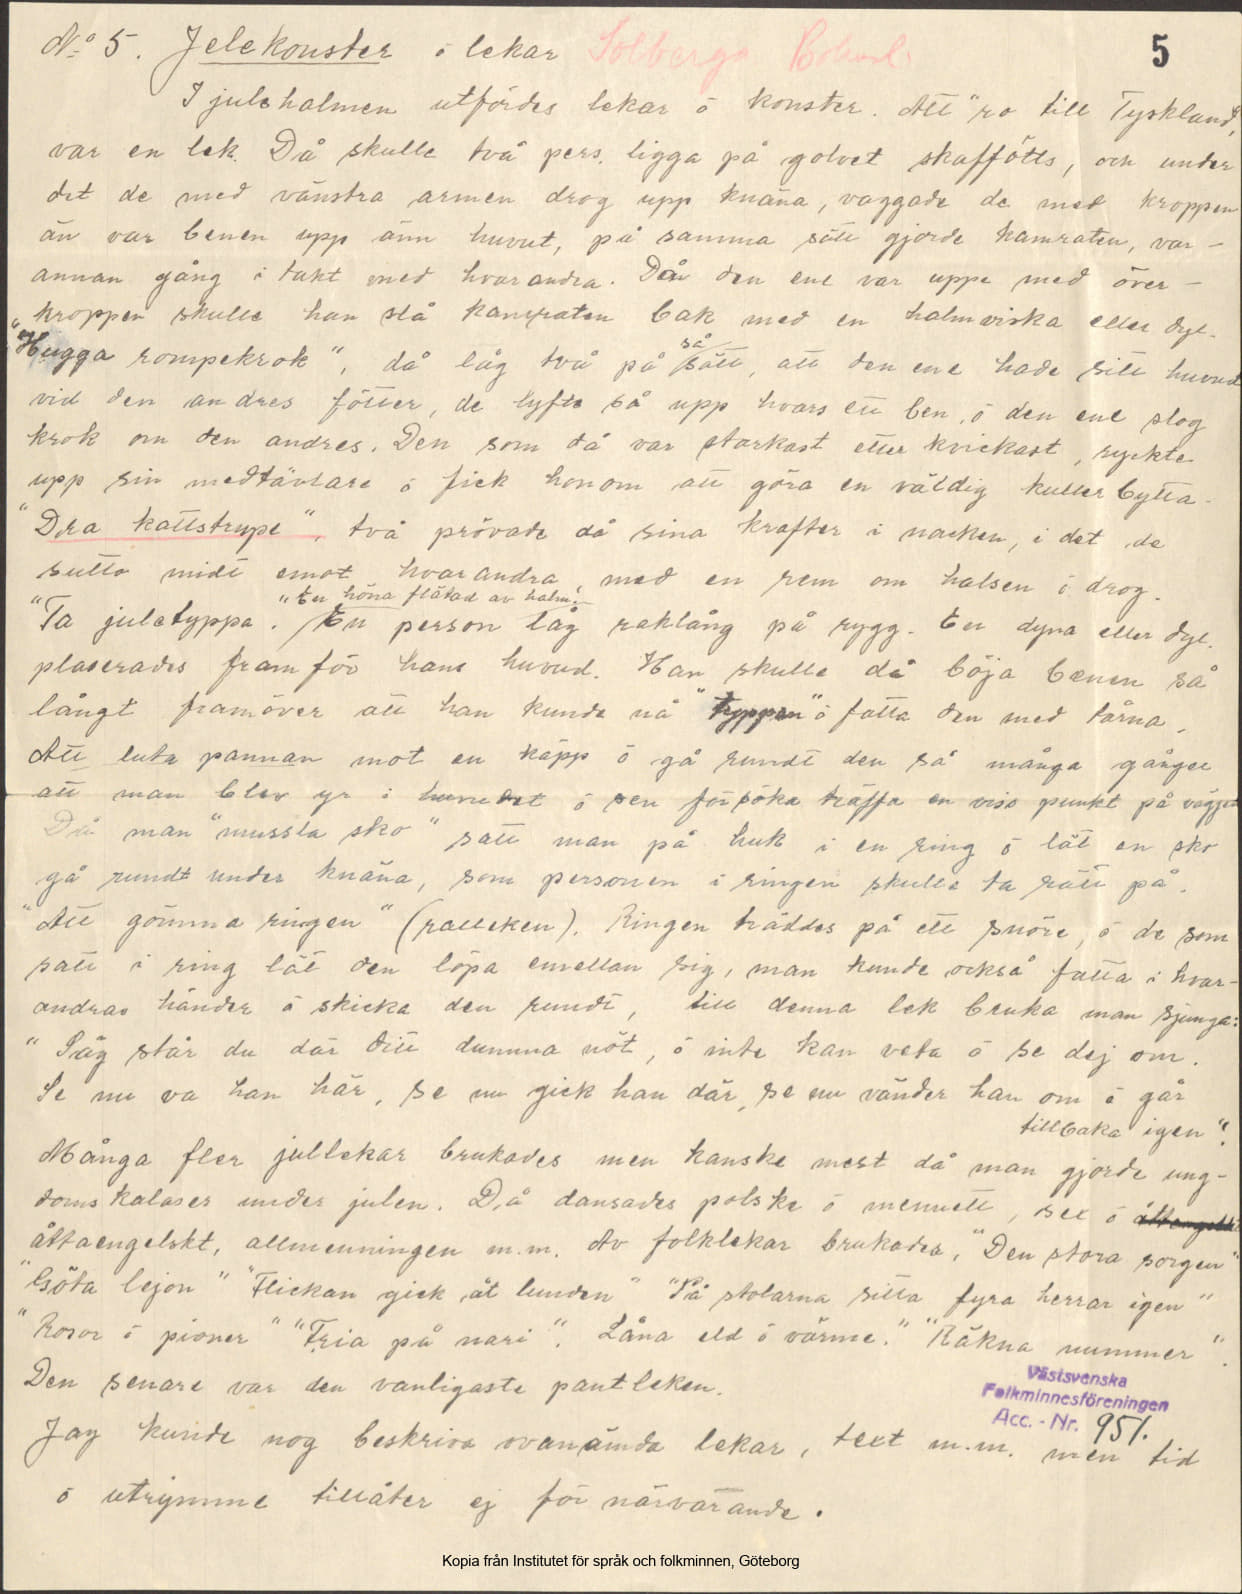 No 5. Jelekonster ó lekar Solberga Bohusl. 5
I julehalmen utfördes lekar ó konster. Att "ro till Tyskland",
var en lek. Då skulle två pers. ligga på golvet skaffötts, och under
det de med vänstra armen drog upp knäna, vaggade de med kroppen
än var benen upp änn huvut, på samma sätt gjorde kamraten, var-
annan gång i takt med hvarandra. Då den ene var uppe med över-
kroppen skulle han slå kamraten bak med en halmviska eller dyl.
"Hugga rompekrok", då låg två på så sätt, att den ene hade sitt huvud
vid den andres fötter, de lyfte så upp hvars ett ben, ó den ene slog
krok om den andres. Den som då var starkast eller kvickast, ryckte
upp sin medtävlare ó fick honom att göra en väldig kullerbytta.
"Dra kattstrype", två prövade då sina krafter i nacken, i det de
sutto midt emot hvarandra, med en rem om halsen ó drog.
"en höna flätad av halm".
"Ta juletyppa. En person låg raklång på rygg. En dyna eller dyl.
plaserades framför hans huvud. Han skulle då böja benen så
långt framöver att han kunde nå "typpen" ó fatta den med tårna.
Att luta pannan mot en käpp ó gå rundt den så många gånger
att man blev yr i huvudet ó sen försöka träffa en viss punkt på väggen
Då man "mussla sko" satt man på huk i en ring ó lät en sko
gå rundt under knäna, som personen i ringen skulle ta rätt på.
"Att gömma ringen" (ralleken). Ringen träddes på ett snöre, ó de som
satt i ring lät den löpa emellan sig, man kunde också fatta i hvar-
andras händer ó skicka den rundt, till denna lek bruka man sjunga:
"Säg står du där ditt dumma nöt, ó inte kan veta ó se dej om.
Se nu va han här, se nu gick han där, se nu vänder han om ó går
tillbaka igen".
Många fler jullekar brukades men kanske mest då man gjorde ung-
domskalaser under julen. Då dansades polska ó menuett, sex ó
åttaengelskt, allmenningen m.m. Av folklekar brukades, "Den stora sorgen"
"Göta lejon" "Flickan gick åt lunden" "På stolarna sitta fyra herrar igen"
"Rosor ó pioner" "Fria på nari". Låna eld ó värme." "Räkna nummer".
Den senare var den vanligaste pantleken.
Västsvenska
Folkminnesföreningen
Acc.-Nr. 951.
Jag kunde nog beskriva ovannämda lekar, text m.m. men tid
ó utrymme tillåter ej för närvarande.
Kopia från Institutet för språk och folkminnen, Göteborg